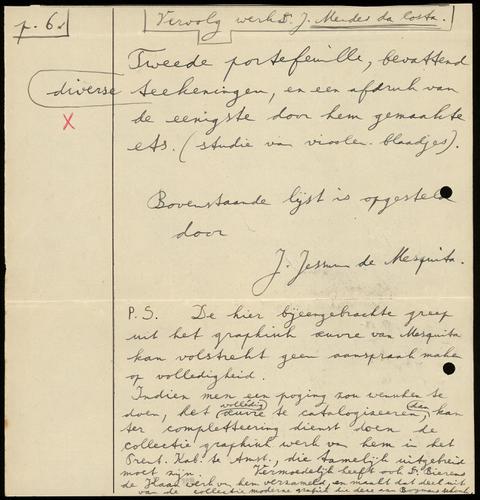 p. 6.
Vervolg werk J. Mendes da Costa.
Tweede portefeuille, bevattend
diverse teekeningen, en een afdruk van
x
de eenigste door hem gemaakte
ets. (studie van viooleblaadjes).
Bovenstaande lijst is opgesteld
door
J. Jessurun de Mesquita.
P.S. De hier bijeengebrachte greep
uit het graphisch œuvre van Mesquita
kan volstrekt geen aanspraak maken
op volledigheid.
Indien men een poging zou wenschen te
doen, het volledig œuvre te catalogiseeren, dan kan
ter completteering dienst doen de
collectie graphisch werk van hem in het
Prent. Kab. te Amst., die tamelijk uitgebreid
moet zijn. Vermoedelijk heeft ook Dr. Bierens
de Haan werk v. hem verzameld, en maakt dat deel uit
van de collectie moderne grafiek die des aan Boymans